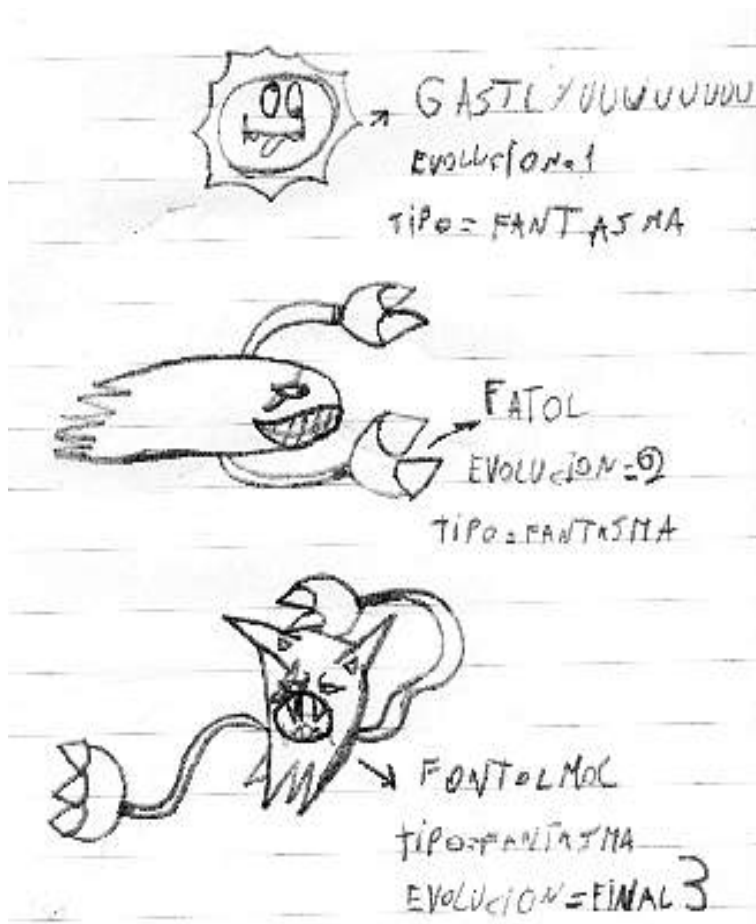 GASTLYUUUUUUUU
EVOLUCION=1
TIPO=FANTASMA
FATOL
EVOLUCION=2
TIPO=FANTASMA
FONTOLMOC
TIPO=FANTASMA
EVOLUCION=FINAL 3